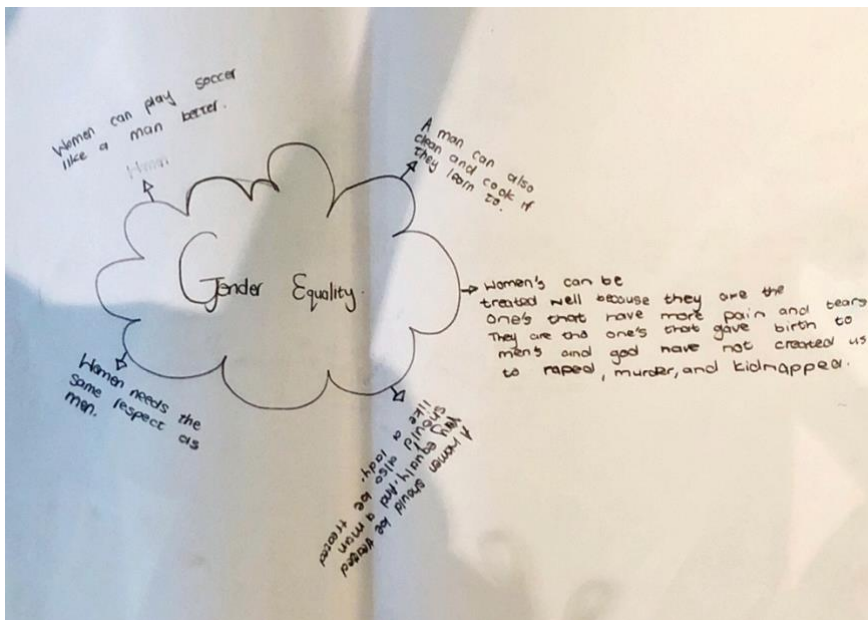 Women can play soccer
like a man better.
A man can also
clean and cook if
they learn to.
Gender Equality.
Women's can be
treated well because they are the
one's that have more pain and tears
They are the one's that gave birth to
men's and god have not created us
to raped, murder, and kidnapped.
Women needs the
same respect as
men.
A women should be treated
equally. And a man
should also be treated
like a lady.